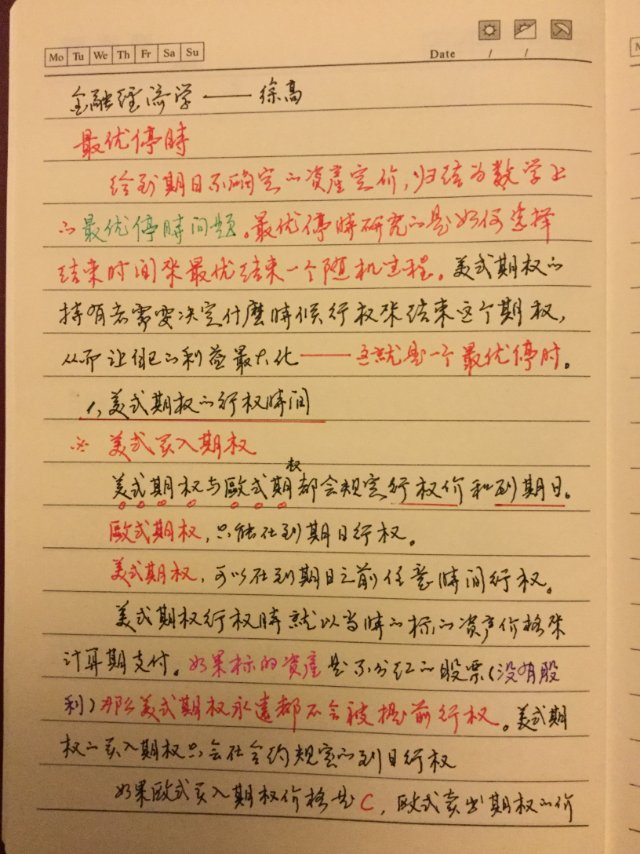 Mo Tu We Th Fr Sa Su
Date / /
金融经济学 —— 徐高
最优停時
给到期日不确定的資產定价,归结为数学上
的最优停時间题。最优停時研究的是如何选择
结束时间来最优结束一个随机过程。美式期权的
持有者需要决定什麽時候行权来结束这个期权,
从而让自己的利益最大化——这就是一个最优停时。
1、美式期权的行权時间
※ 美式买入期权
美式期权与歐式期权都会规定行权价和到期日。
歐式期权,只能在到期日行权。
美式期权,可以在到期日之前任意時间行权。
美式期权行权時就以当時的标的资产价格来
计算期支付。如果标的资產是不分红的股票(没有股
利)那么美式期权永遠都不会被提前行权。美式期
权的买入期权只会在合约规定的到日行权
如果歐式买入期权价格是C,歐式卖出期权的价